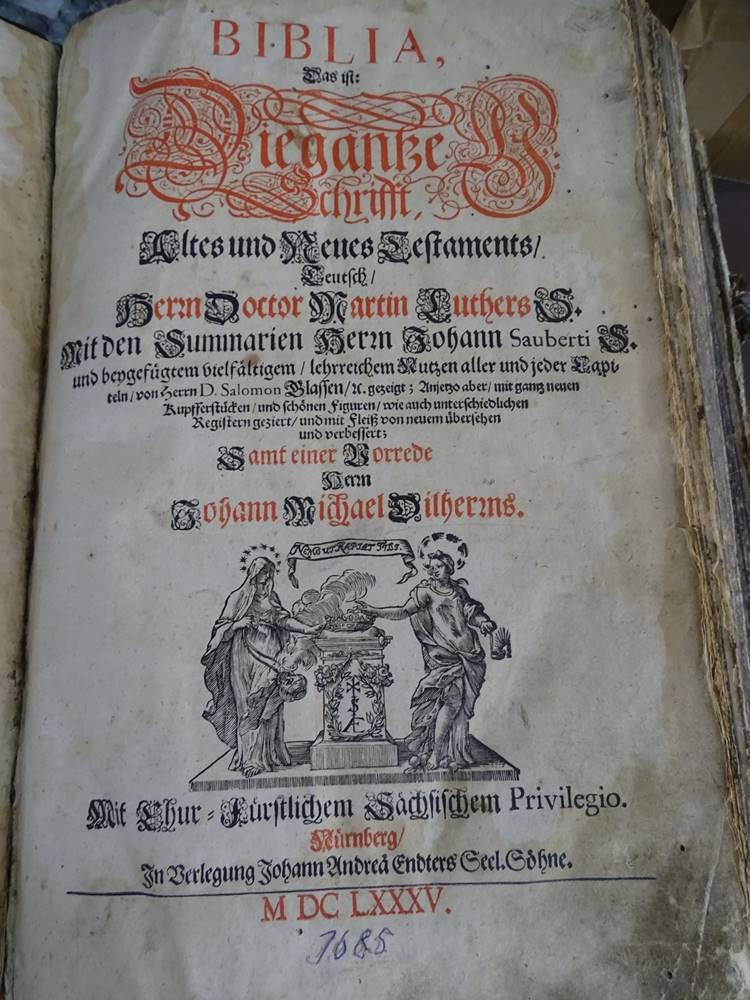 BIBLIA,
Das ist:
Die gantze H.
Schrifft,
Altes und Neues Testaments/
Teutsch/
Herrn Doctor Martin Luthers S.
Mit den Summarien Herrn Johann Sauberti S.
und beygefügtem vielfältigem / lehrreichem Nutzen aller und jeder Capi-
teln / von Herrn D. Salomon Glassen / ꝛc. gezeigt; Anjetzo aber / mit gantz neuen
Kupfferstücken / und schönen Figuren / wie auch unterschiedlichen
Registern geziert / und mit Fleiß von neuem übersehen
und verbessert;
Samt einer Vorrede
Herrn
Johann Michael Dilherrns.
UT RAPIAT
Mit Chur-Fürstlichem Sächsischem Privilegio.
Nürnberg/
In Verlegung Johann Andreä Endters Seel. Söhne.
M DC LXXXV.
1685